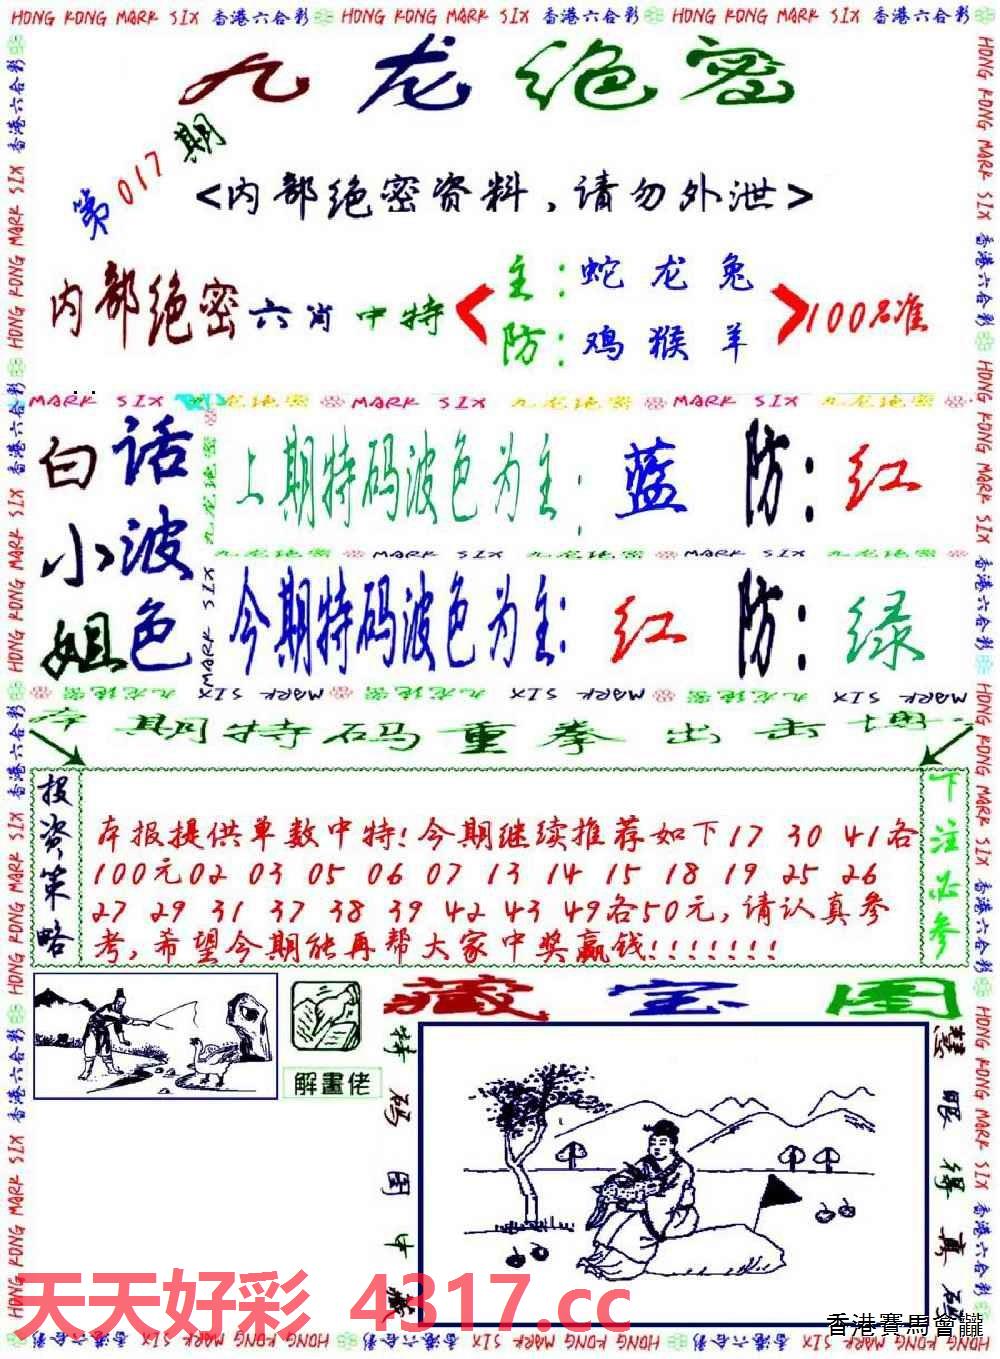 HONG KONG MARK SIX 香港六合彩 HONG KONG MARK SIX 香港六合彩 HONG KONG MARK SIX 香港六合彩
九龙绝密
第017期
<内部绝密资料，请勿外泄>
内部绝密六肖中特
主：蛇 龙 兔
防：鸡 猴 羊
100%准
MARK SIX 九龙绝密 MARK SIX 九龙绝密 MARK SIX 九龙绝密
白小姐
话波色
上期特码波色为主：蓝 防：红
九龙绝密 MARK SIX 九龙绝密 MARK SIX 九龙绝密
今期特码波色为主：红 防：绿
本期特码重拳出击
投资策略
本报提供单数中特!今期继续推荐如下17 30 41各
100元02 03 05 06 07 13 14 15 18 19 25 26
27 29 31 37 38 39 42 43 49各50元,请认真参
考,希望今期能再帮大家中奖赢钱!!!!!!!
下注必参
藏宝图
解畫佬
特码图中藏
慧眼得真码
天天好彩 4317.cc
香港賽馬會